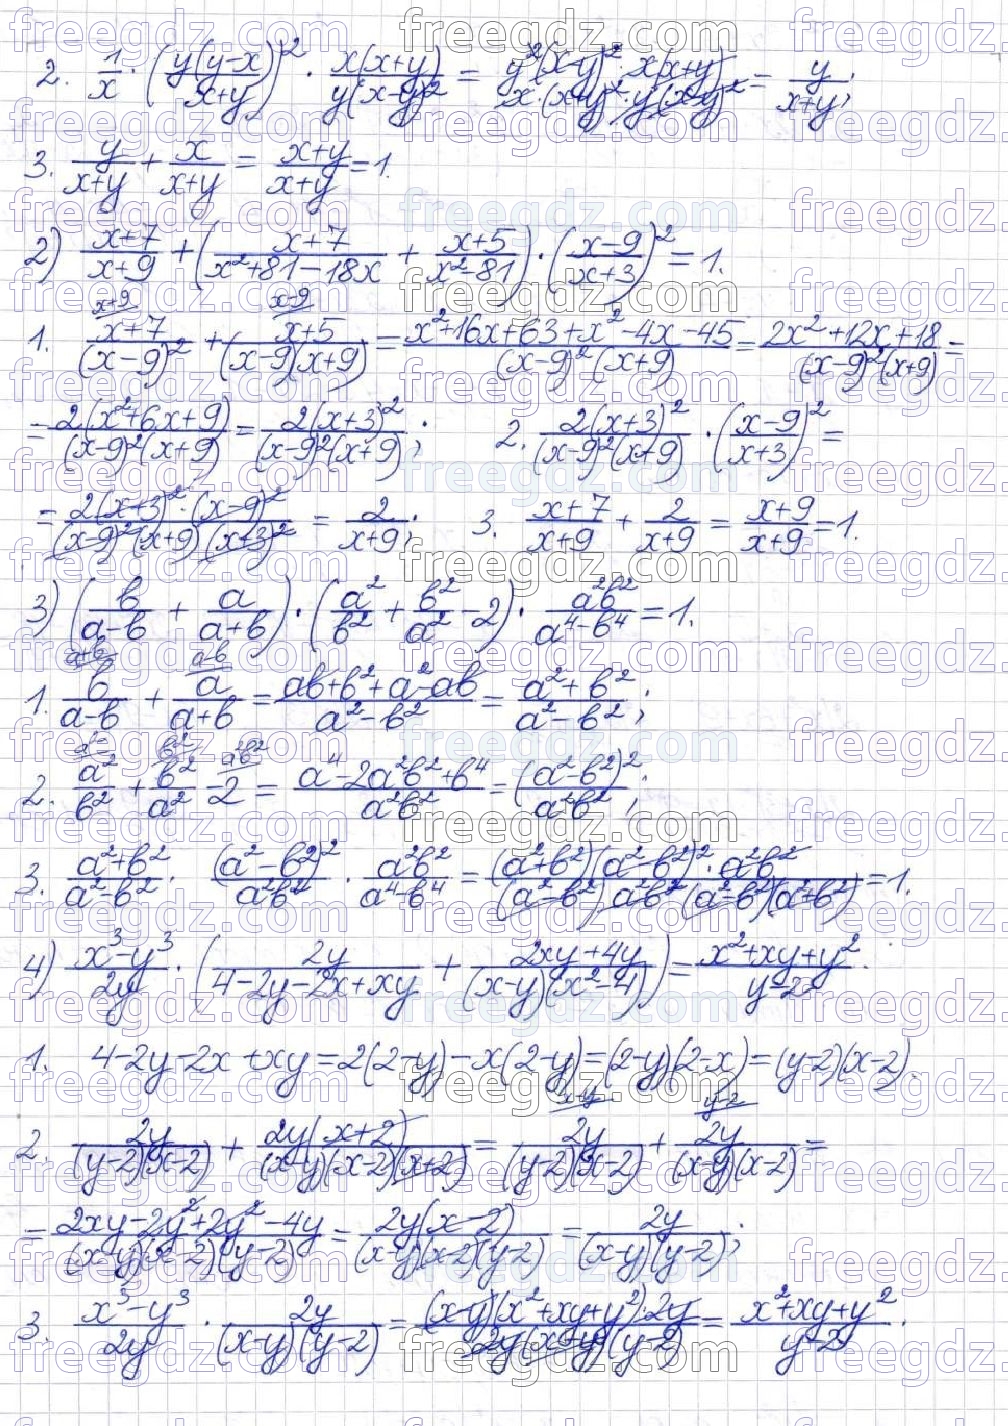 2. 1/x · (y(y-x)/(x+y))² · x(x+y)/(y(x-y)²) = y²(x-y)² · x(x+y)/(x·(x+y)²·y(x-y)²) = y/(x+y);
3. y/(x+y) + x/(x+y) = (x+y)/(x+y) = 1.
2) (x+7)/(x+9) + ((x+7)/(x²+81-18x) + (x+5)/(x²-81)) · ((x-9)/(x+3))² = 1.
1. (x+7)/(x-9)² + (x+5)/((x-9)(x+9)) = (x²+16x+63+x²-4x-45)/((x-9)²(x+9)) = (2x²+12x+18)/((x-9)²(x+9)) =
= 2(x²+6x+9)/((x-9)²(x+9)) = 2(x+3)²/((x-9)²(x+9)); 2. 2(x+3)²/((x-9)²(x+9)) · ((x-9)/(x+3))² =
= 2(x+3)²·(x-9)²/((x-9)²(x+9)(x+3)²) = 2/(x+9); 3. (x+7)/(x+9) + 2/(x+9) = (x+9)/(x+9) = 1.
3) (b/(a-b) + a/(a+b)) · (a²/b² + b²/a² - 2) · a²b²/(a⁴-b⁴) = 1.
1. b/(a-b) + a/(a+b) = (ab+b²+a²-ab)/(a²-b²) = (a²+b²)/(a²-b²);
2. a²/b² + b²/a² - 2 = (a⁴-2a²b²+b⁴)/(a²b²) = (a²-b²)²/(a²b²);
3. (a²+b²)/(a²-b²) · (a²-b²)²/(a²b²) · a²b²/(a⁴-b⁴) = (a²+b²)(a²-b²)²·a²b²/((a²-b²)a²b²(a²-b²)(a²+b²)) = 1.
4) (x³-y³)/(2y) · (2y/(4-2y-2x+xy) + (2xy+4y)/((x-y)(x²-4))) = (x²+xy+y²)/(y-2).
1. 4-2y-2x+xy=2(2-y)-x(2-y)=(2-y)(2-x)=(y-2)(x-2).
2. 2y/((y-2)(x-2)) + 2y(x+2)/((x-y)(x-2)(x+2)) = 2y/((y-2)(x-2)) + 2y/((x-y)(x-2)) =
= (2xy-2y²+2y²-4y)/((x-y)(x-2)(y-2)) = 2y(x-2)/((x-y)(x-2)(y-2)) = 2y/((x-y)(y-2));
3. (x³-y³)/(2y) · 2y/((x-y)(y-2)) = (x-y)(x²+xy+y²)·2y/(2y(x-y)(y-2)) = (x²+xy+y²)/(y-2).